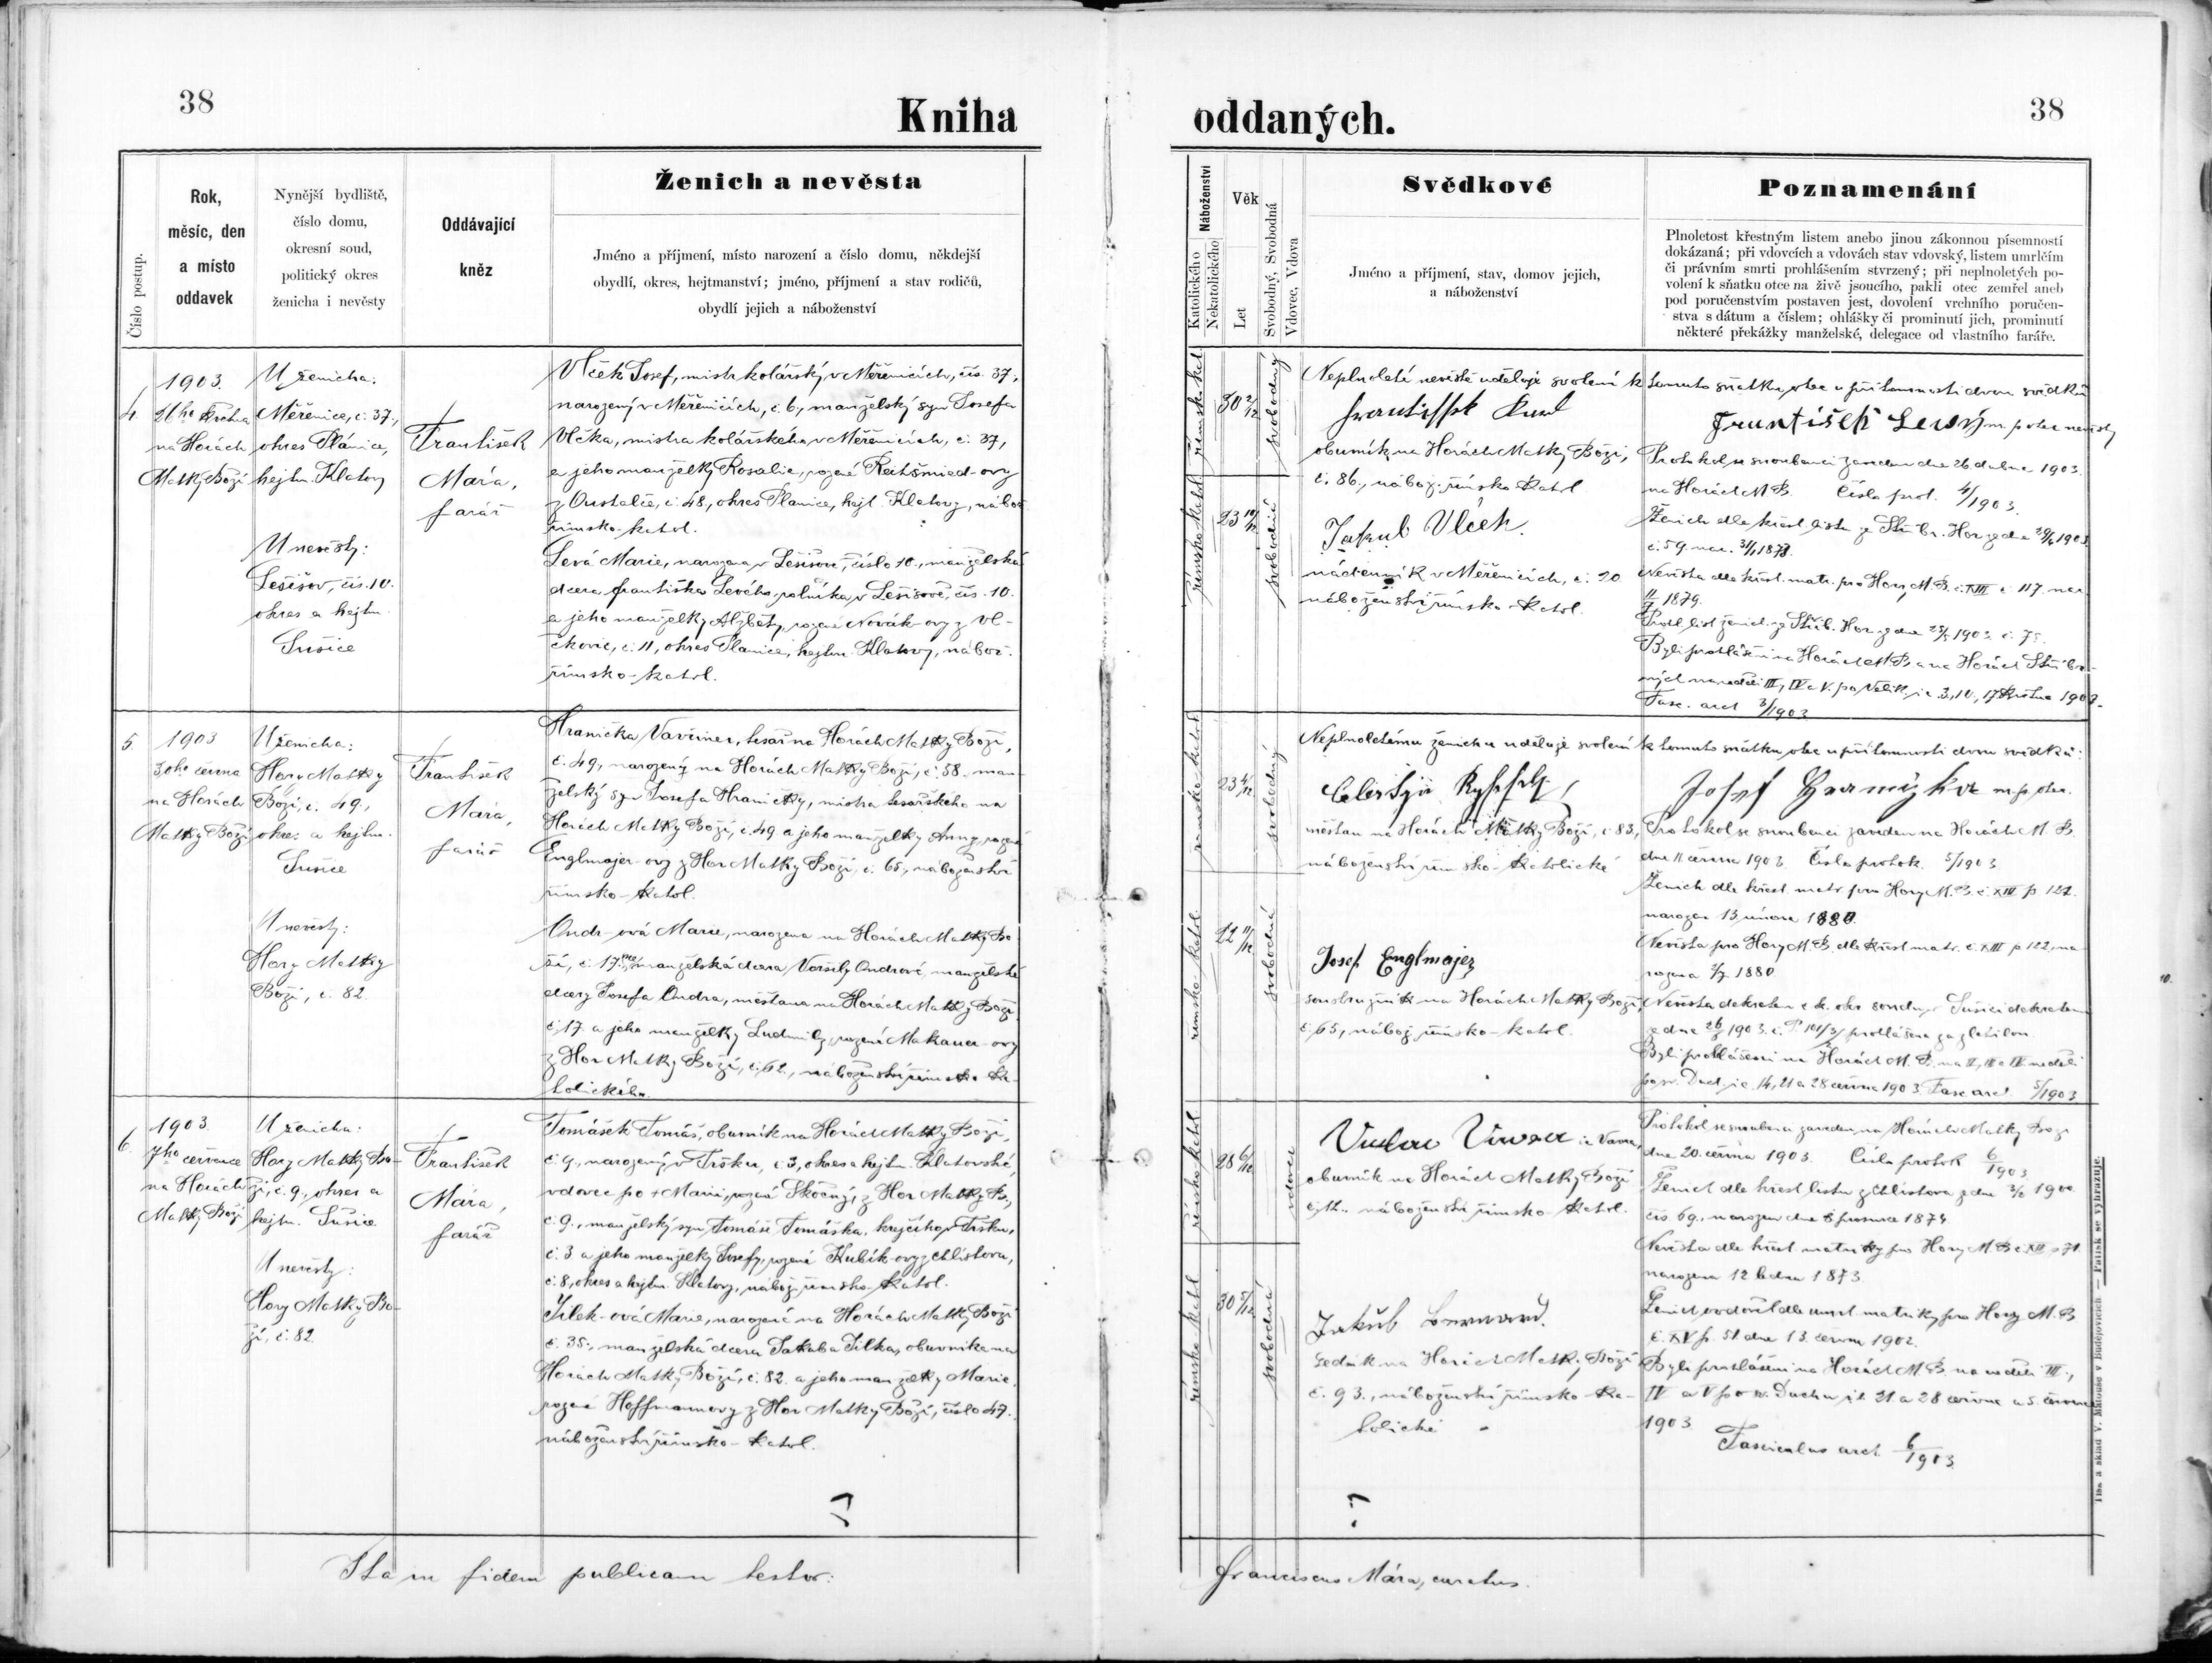 38
Kniha
oddaných.
38
Číslo postup.
Rok,
měsíc, den
a místo
oddavek
Nynější bydliště,
číslo domu,
okresní soud,
politický okres
ženicha i nevěsty
Oddávající
kněz
Ženich a nevěsta
Jméno a příjmení, místo narození a číslo domu, někdejší
obydlí, okres, hejtmanství; jméno, příjmení a stav rodičů,
obydlí jejich a náboženství
Náboženství
Katolického
Nekatolického
Věk
Let
Svobodný, Svobodná
Vdovec, Vdova
Svědkové
Jméno a příjmení, stav, domov jejich,
a náboženství
Poznamenání
Plnoletost křestným listem anebo jinou zákonnou písemností
dokázaná; při vdovcích a vdovách stav vdovský, listem umrlčím
či právním smrti prohlášením stvrzený; při neplnoletých po-
volení k sňatku otce na živě jsoucího, pakli otec zemřel aneb
pod poručenstvím postaven jest, dovolení vrchního poručen-
stva s dátum a číslem; ohlášky či prominutí jich, prominutí
některé překážky manželské, delegace od vlastního faráře.
4.
1903.
na Horách
Matky Boží
U ženicha:
Měřenice, č. 37.,
okres Plánice,
hejtm. Klatovy
U nevěsty:
Lešišov, čís. 10.
okres a hejtm.
Sušice
František
Mára,
farář
Vlček Josef, mistr kolářský v Měřenicích, čís. 37,
narozený v Měřenicích, č. 6, manželský syn Josefa
Vlčka, mistra kolářského v Měřenicích, č. 37,
a jeho manželky Rosalie, rozené
č. 48, okres Plánice, hejt. Klatovy, nábož.
římsko-katol.
Levá Marie, narozena v Lešišově, číslo 10., manželská
dcera Františka Levého, rolníka v Lešišově, čís. 10.
a jeho manželky Alžběty, rozené Novák-ovy z Vl-
čkovic, č. 11, okres Plánice, hejtm. Klatovy, nábož.
římsko-katol.
římsko-katol.
30
svobodný
římsko-katol.
23
svobodná
Neplnoleté nevěstě uděluje svolení k tomuto sňatku otec u přítomnosti dvou svědků
obuvník na Horách Matky Boží,
č. 86., nábož. římsko-katol.
Jakub Vlček.
nádenník v Měřenicích, č. 20
náboženství římsko-katol.
František Levý m.p. otec nevěsty
Protokol se snoubenci zaveden dne 26. dubna 1903.
na Horách M. B. Číslo prot. 4/1903.
Nevěsta dle křest. matr. pro Hory M. B. č. XIII p. 117 nar.
1879.
Byli prohlášeni na Horách M. B. a na Horách Stříbr-
ných na neděli III, IV a V. po Velik. je 3., 10., 17. května 1903.
Fasc. arch. 3/1903
5.
1903
30ho června
na Horách
Matky Boží
U ženicha:
Hory Matky
Boží, č. 49.,
okres a hejtm.
Sušice
U nevěsty:
Hory Matky
Boží, č. 82.
František
Mára,
farář
Hranička Vavřinec, tesař na Horách Matky Boží,
č. 49, narozený na Horách Matky Boží, č. 58. man-
želský syn Josefa Hraničky, mistra tesařského na
Horách Matky Boží, č. 49 a jeho manželky Anny, rozené
Englmajer-ovy z Hor Matky Boží, č. 65., náboženství
římsko-katol.
Ondr-ová Marie, narozena na Horách Matky Bo-
ží, č. 17., nemanželská dcera Voršily Ondrové, manželské
dcery Josefa Ondra, měšťana na Horách Matky Boží
č. 17. a jeho manželky Ludmily, rozené Makauer-ovy
z Hor Matky Boží, č. 62., náboženství římsko-ka-
tolického.
římsko-katol.
23
svobodný
římsko-katol.
22
svobodná
Neplnoletému ženichu uděluje svolení k tomuto sňatku otec u přítomnosti dvou svědků:
měšťan na Horách Matky Boží, č. 83,
náboženství římsko-katolické
Josef Englmajer
soustružník na Horách Matky Boží,
č. 65, nábož. římsko-katol.
Josef Hranička m.p. otec.
Protokol se snoubenci zaveden na Horách M. B.
dne 11 června 1903. Číslo protok. 5/1903
Ženich dle křest. matr. pro Hory M. B. č. XIII p. 121.
narozen 13 února 1880.
Nevěsta pro Hory M. B. dle křest. matr. č. XIII p. 122, na-
rozena 1880
Byli prohlášeni na Horách M. B. na II, III a IV neděli
po sv. Duch. je 14, 21 a 28 června 1903. Fasc. arch. 5/1903
6.
1903.
7ho července
na Horách
Matky Boží
U ženicha:
Hory Matky Bo-
ží, č. 9., okres a
hejtm. Sušice
U nevěsty:
Hory Matky Bo-
ží, č. 82.
František
Mára,
farář
Tomášek Tomáš, obuvník na Horách Matky Boží,
č. 9., narozený v Tržku, č. 3, okres a hejtm. Klatovské,
vdovec po + Marii, z Hor Matky B.,
č. 9., manželský syn Tomáše Tomáška, krejčího v Tržku,
č. 3 a jeho manželky Josefy, rozené Kubík-ovy z Chlistova,
č. 8, okres a hejtm. Klatovy, nábož. římsko-katol.
Jílek-ová Marie, narozená na Horách Matky Boží
č. 35., manželská dcera Jakuba Jílka, obuvníka na
Horách Matky Boží, č. 82. a jeho manželky Marie,
rozené Hoffmannovy z Hor Matky Boží, číslo 47.
náboženství římsko-katol.
římsko-katol.
28
vdovec
římsko-katol.
30
svobodná
obuvník na Horách Matky Boží
náboženství římsko-katol.
Jakub Bernard.
sedlák na Horách Matky Boží
č. 93., náboženství římsko-ka-
tolické
Protokol se snoubenci zaveden na Horách Matky Boží
dne 20. června 1903. Číslo protok. 6/1903
Ženich dle křest. listu z Chlistova
čís. 69., narozen dne 8 prosince 1874
Nevěsta dle křest. matriky pro Hory M. B. č. XII p. 71.
narozena 12 ledna 1873.
Ženich ovdověl dle úmrt. matriky pro Hory M. B.
č. XV p. 51 dne 13. června 1902.
Byli prohlášeni na Horách M. B. na neděli III.,
IV a V po sv. Duchu je 21 a 28 června a 5. července
1903.
Fasciculus arch. 6/1903.
Ita in fidem publicam testor:
Franciscus Mára, curatus.
Tisk a sklad V. Mikouše v Budějovicích. — Patisk se vyhrazuje.